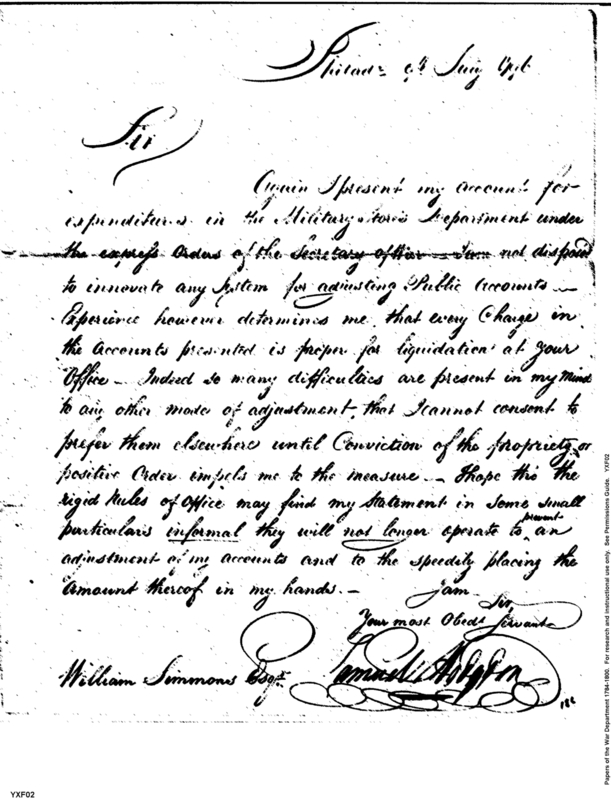 Philada 9th Jany 1796
Sir
Again I present my account for
expenditures in the Military Stores Department under
the express Orders of the Secretary of War — I am not disposed
to innovate any System for adjusting Public Accounts —
Experience however determines me, that every Charge in
the Accounts presented is proper for liquidation at your
Office — Indeed so many difficulties are present in my Mind
to any other mode of adjustment, that I cannot consent to
prefer them elsewhere until Conviction of the propriety, or
positive Order impels me to the measure — I hope tho' the
rigid Rules of Office may find my Statement in some small
particulars informal they will not longer operate to prevent an
adjustment of my accounts and to the speedily placing the
Amount thereof in my hands. —
I am
Sir
Your most Obedt Servant
Samuel Hodgdon
William Simmons Esqr
Papers of the War Department 1784-1800. For research and instructional use only. See Permissions Guide. YXF02
YXF02